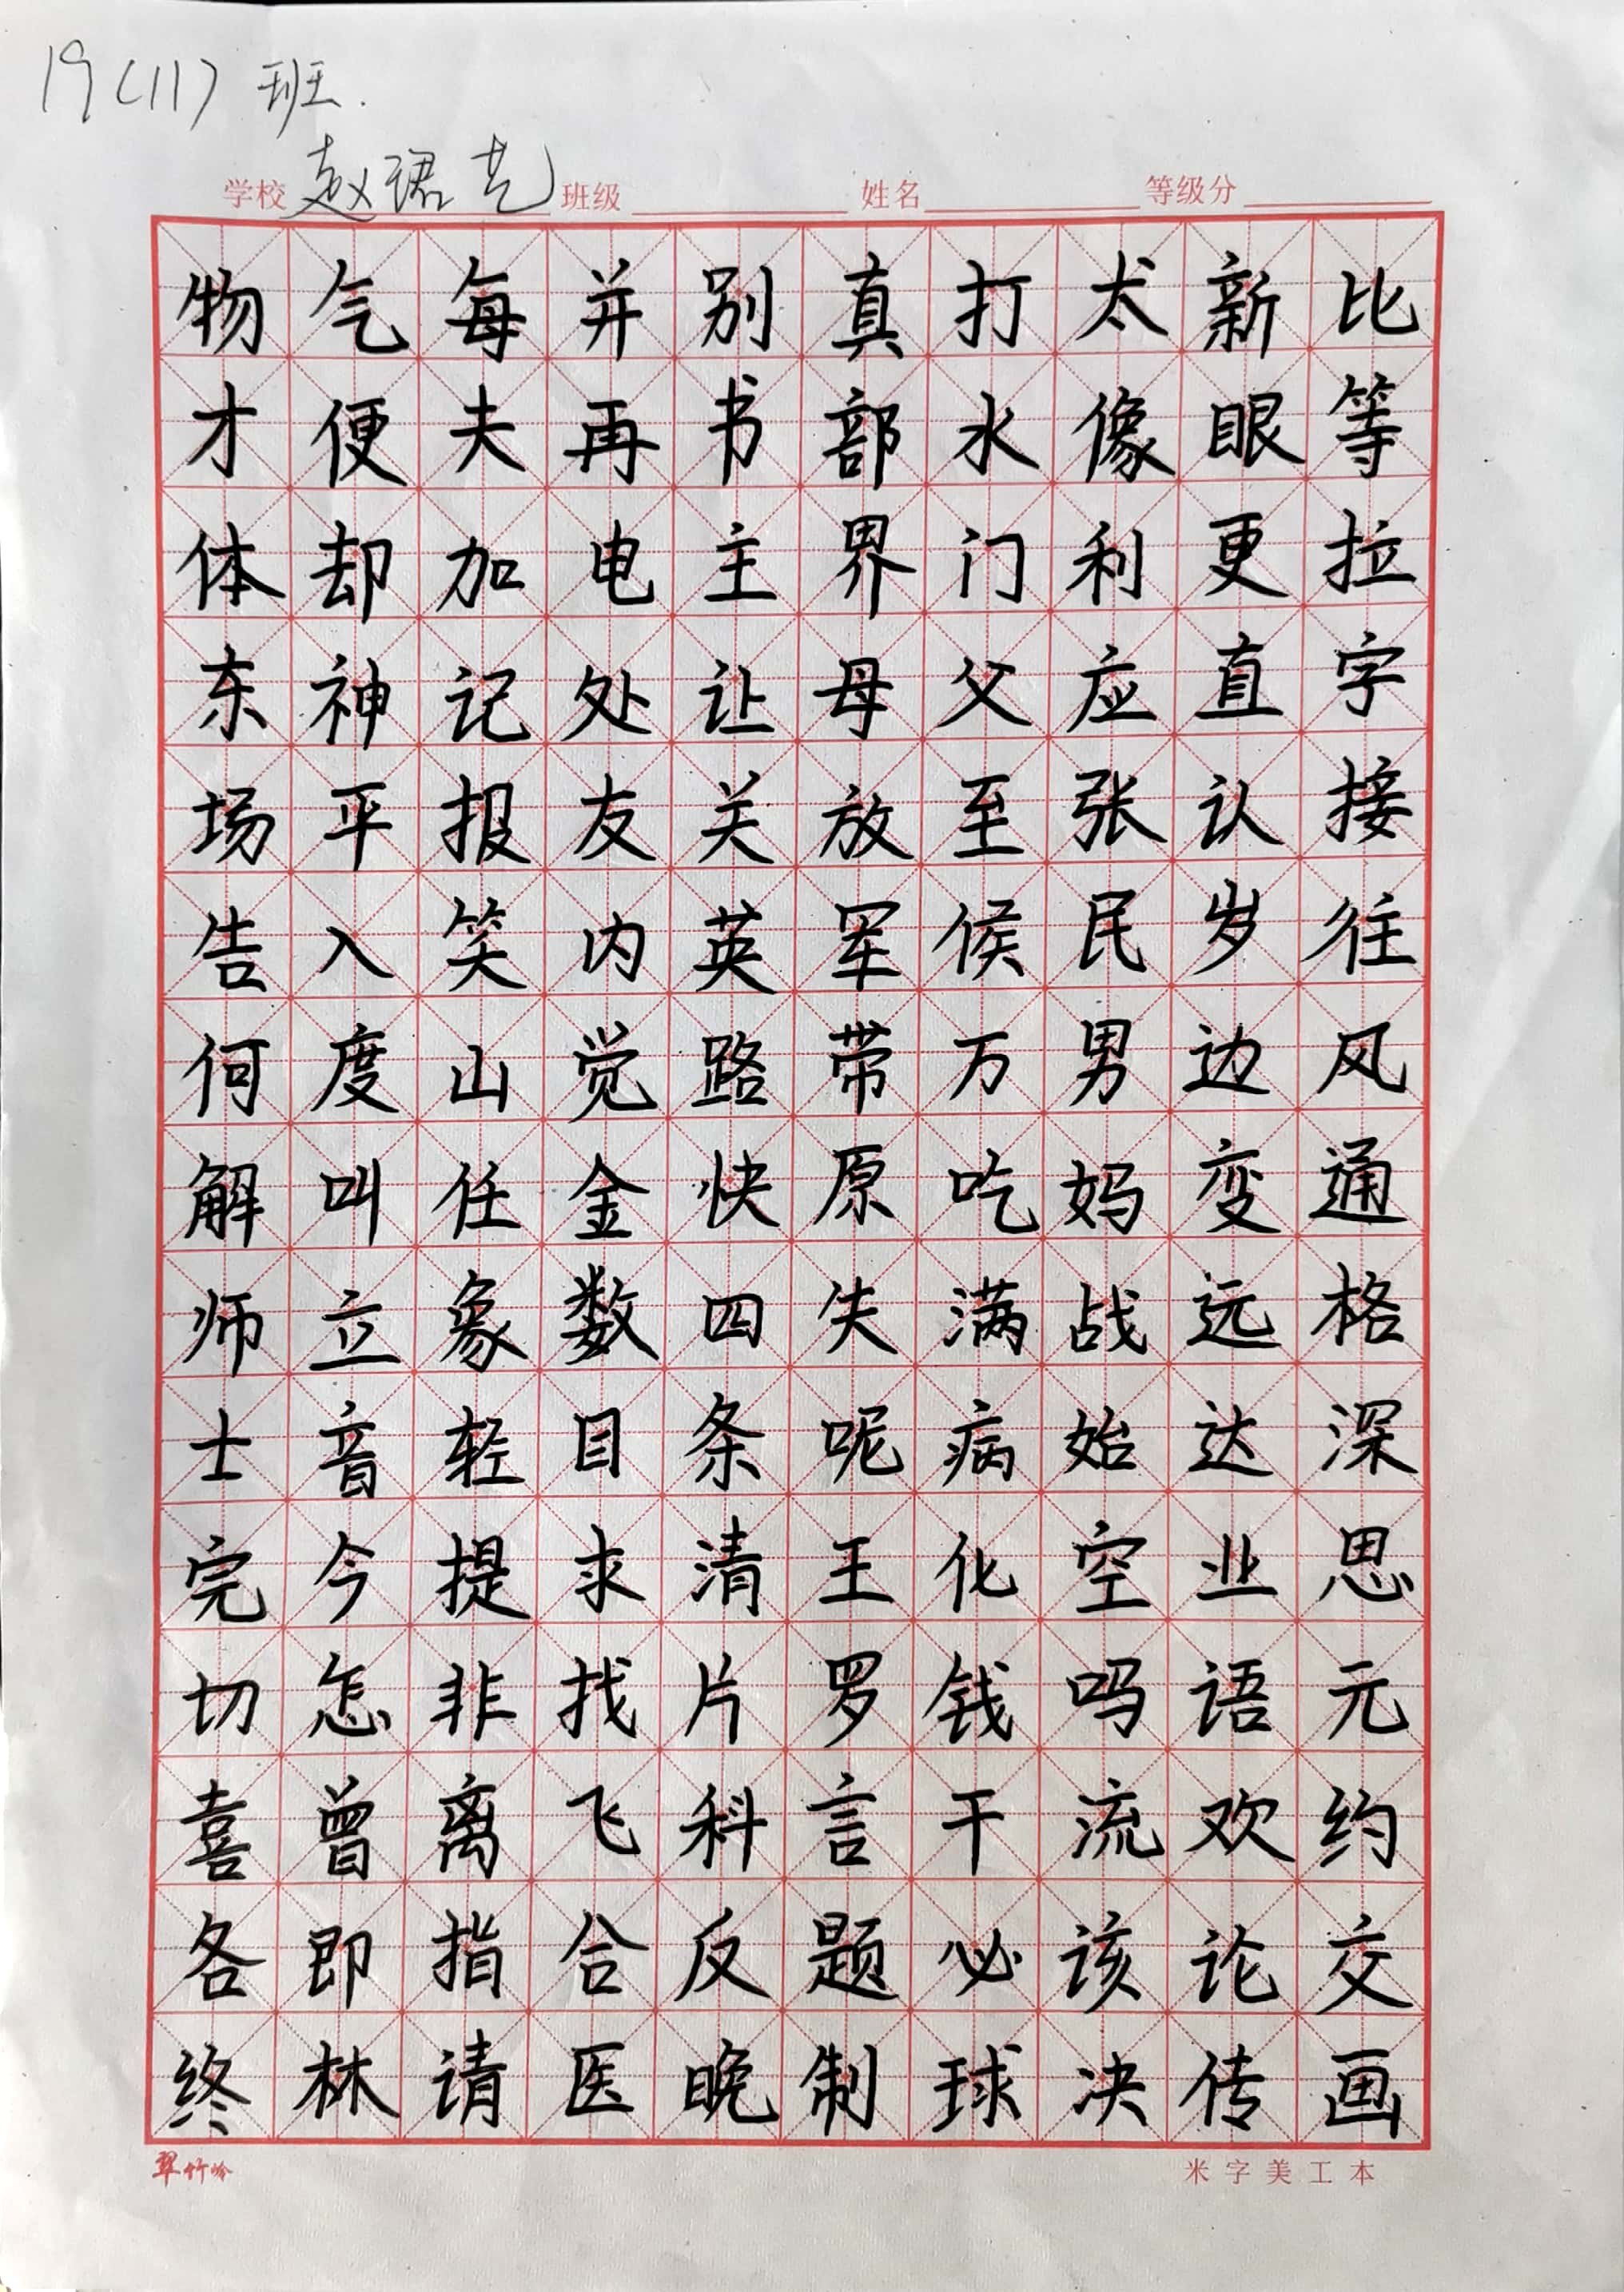 19(11)班.
学校 赵珺艺 班级 姓名 等级分
物气每并别真打太新比
才便夫再书部水像眼等
体却加电主界门利更拉
东神记处让母父应直字
场平报友关放至张认接
告入笑内英军候民岁往
何度山觉路带万男边风
解叫任金快原吃妈变通
师立象数四失满战远格
士音轻目条呢病始达深
完今提求清王化空业思
切怎非找片罗钱吗语元
喜曾离飞科言干流欢约
各即指合反题必该论交
终林请医晚制球决传画
翠竹吟 米字美工本